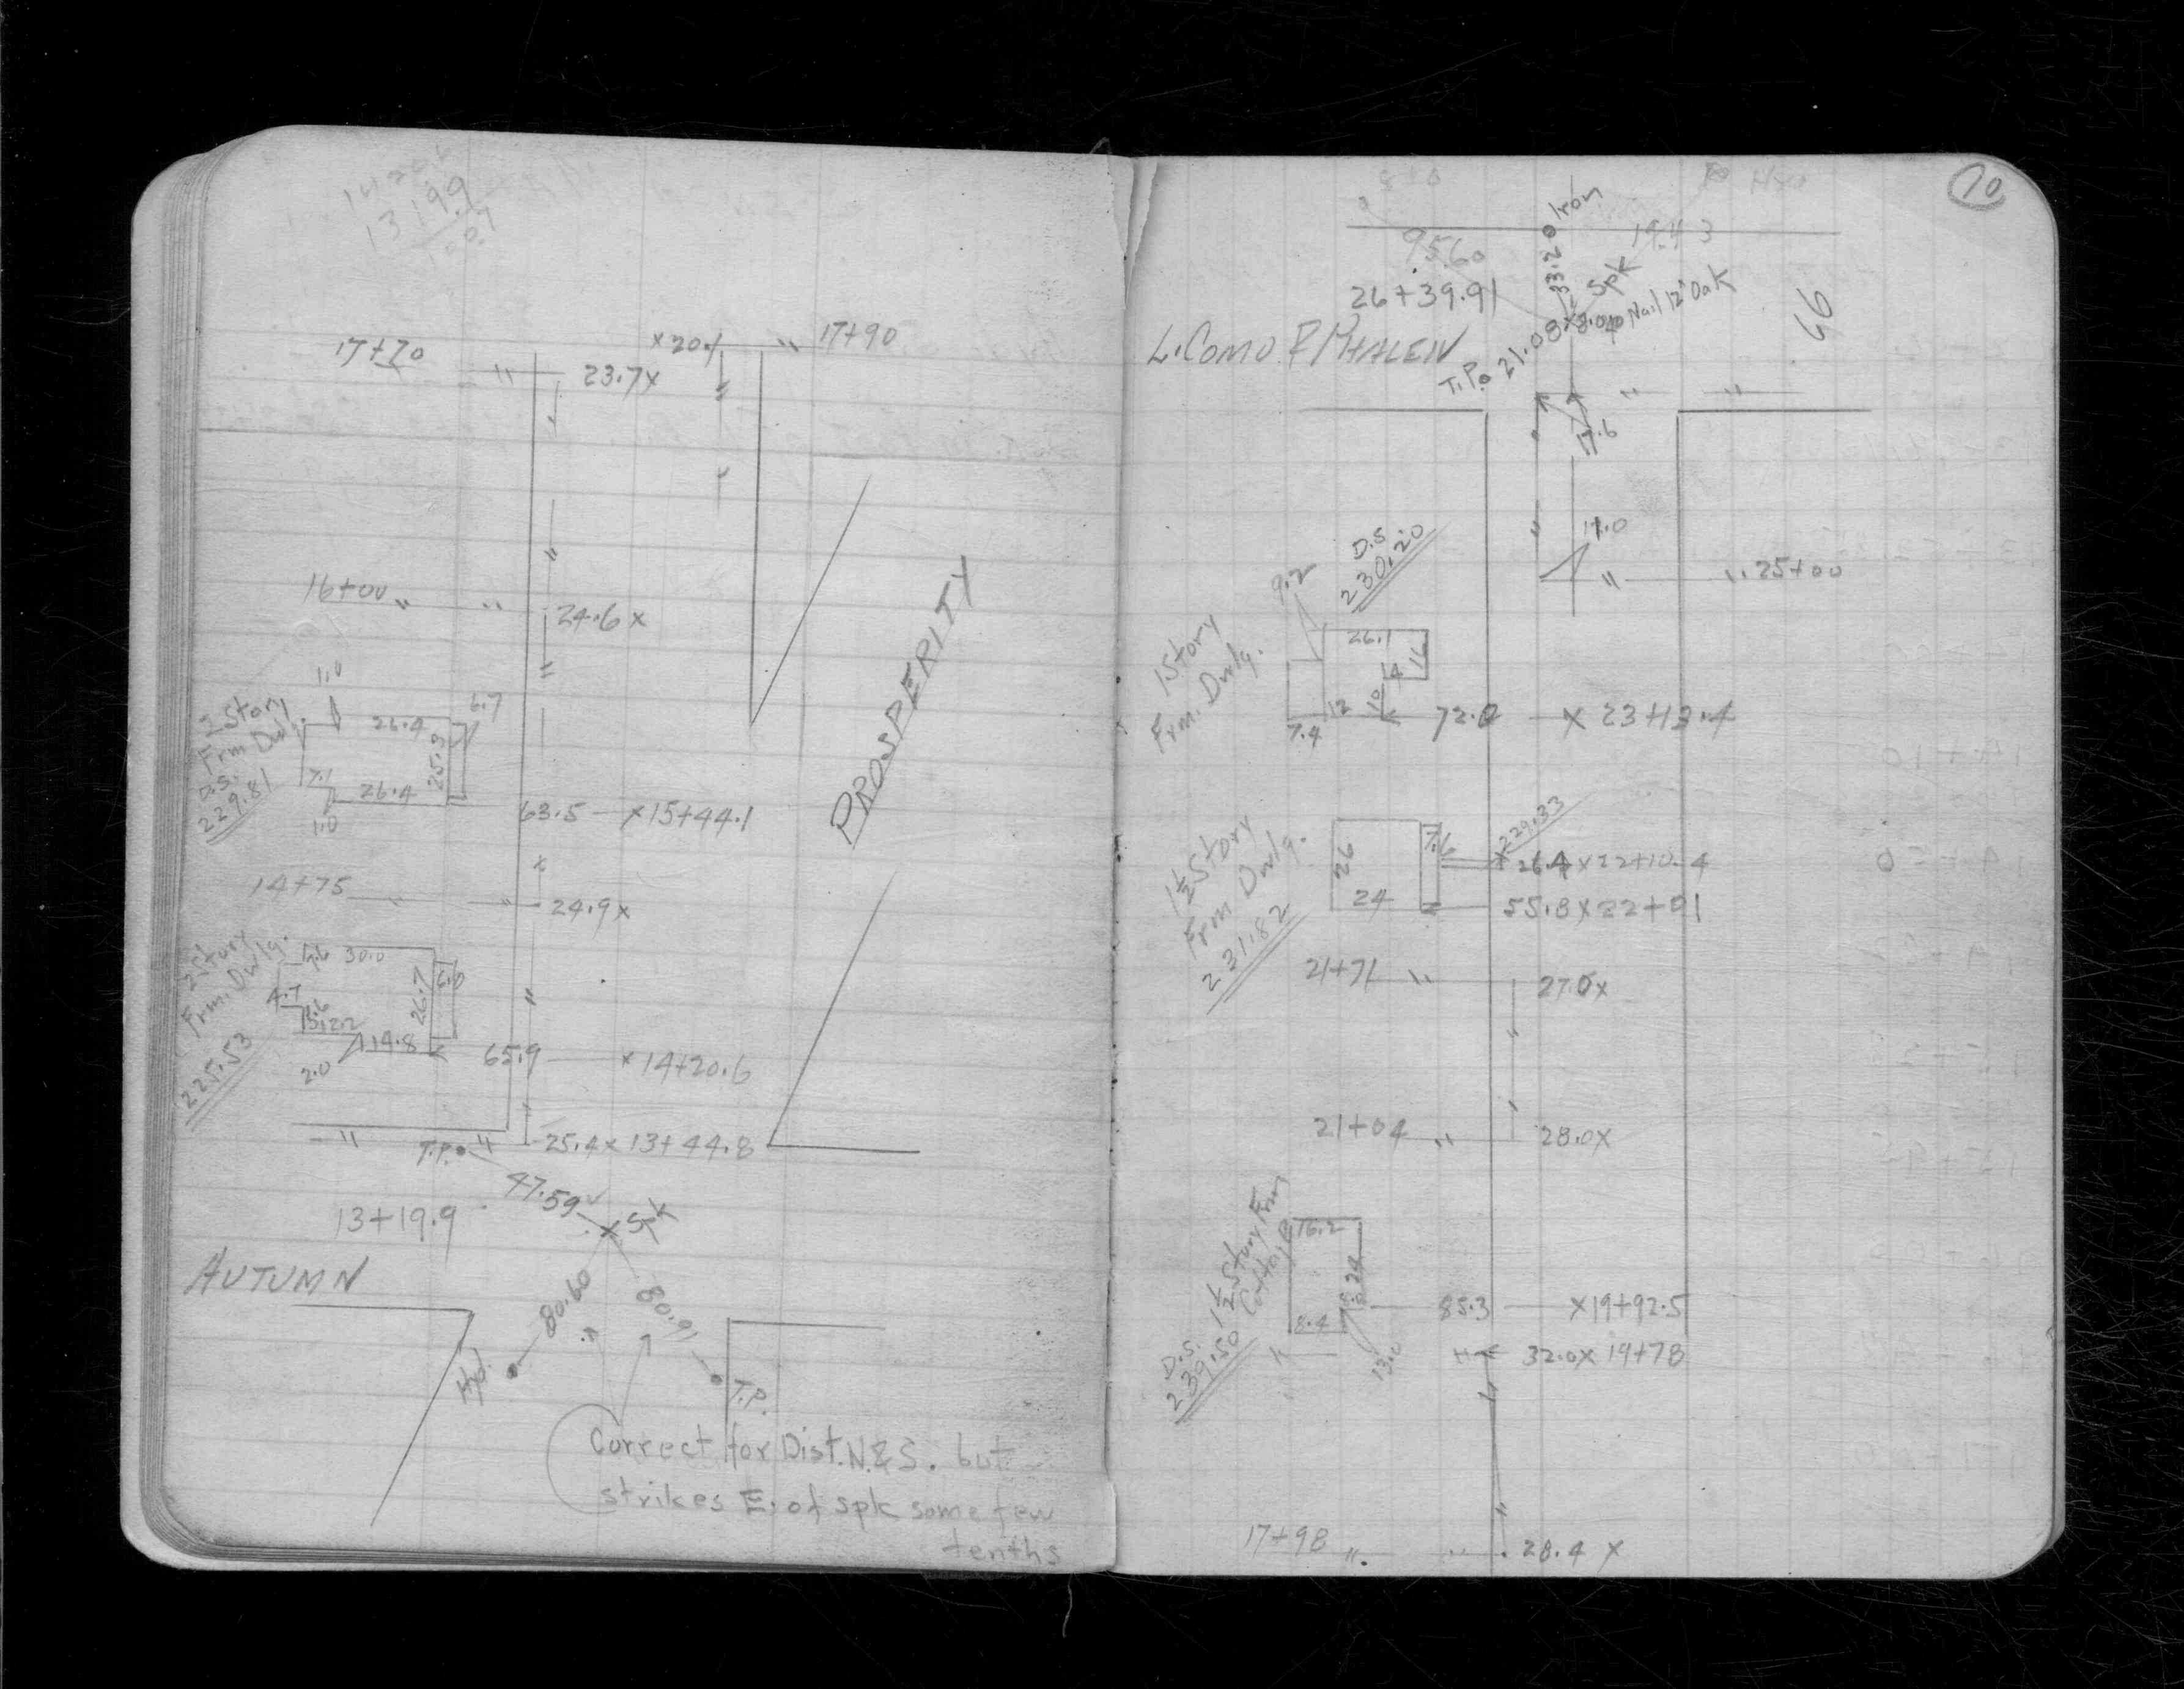 13199
17+70
23.7x
x20.1
17+90
16+00
24.6 x
PROSPERITY
1.0
2 Story
Frm Dwlg.
D.S.
229.81
26.4
6.7
25.9
7.1
26.4
1.0
63.5 x15+44.1
14+75
24.9x
2 Story
Frm. Dwlg.
225.53
30.0
4.7
26.7
14.8
2.0
65.9 x14+20.6
T.P.
25.4x 13+44.8
47.59
13+19.9
x Spk
AUTUMN
80.60
80.91
Hyd.
T.P.
Correct for Dist. N.&S. but
strikes E. of spk some few
tenths
10
95.60
19.43
33.20 Iron
26+39.91
Spk
Nail 12" Oak
66
L. COMO & PHALEN
T.P. 21.08
17.6
11.0
25+00
D.S.
230.20
9.2
1 Story
Frm. Dwlg.
26.1
16
4
10
12
7.4
72.0 x 23+13.4
1½ Story
Frm Dwlg.
231.82
26
7.6
24
229.33
26.4x22+10.4
55.8x22+01
21+71
27.0x
21+04
28.0x
1½ Story Frm
Cottage
D.S.
239.50
16.2
24
8.4
13.0
85.3 x19+92.5
H 32.0x 19+78
17+98
28.4 x